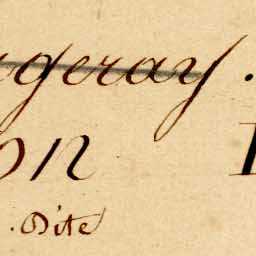 geray.
on
. Dite